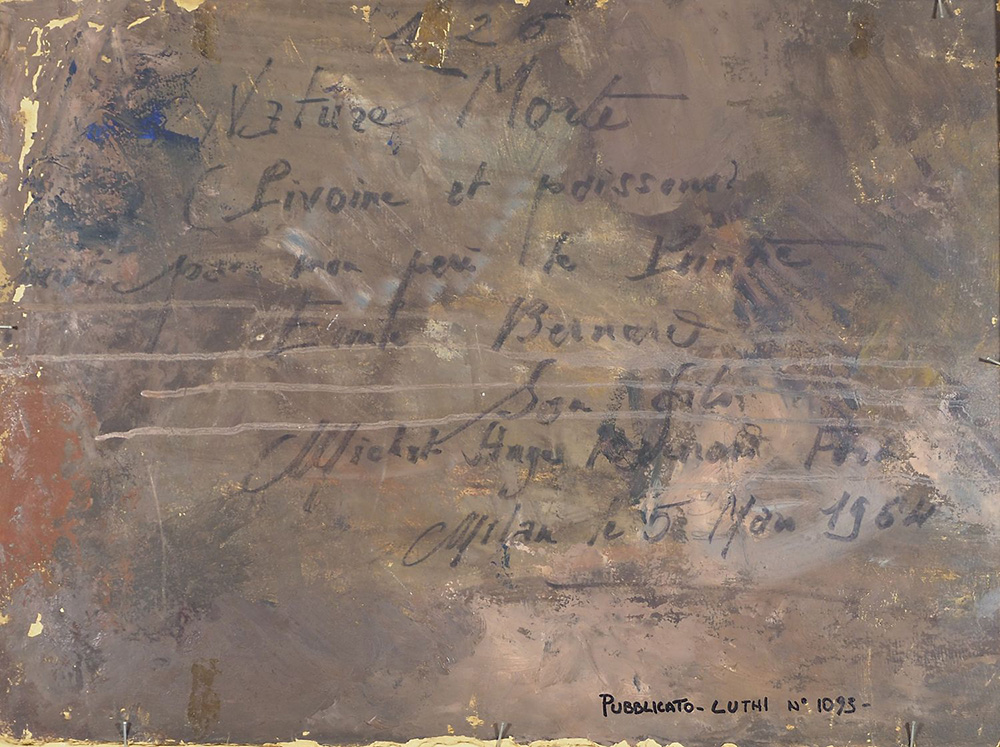 1926
Nature Morte
(Pivoine et poissons)
par mon père le Peintre
Emile Bernard
Son fils
Michel Ange Bernard Fort
Milan le 5 Mai 1964
PUBBLICATO - LUTHI N° 1093 -